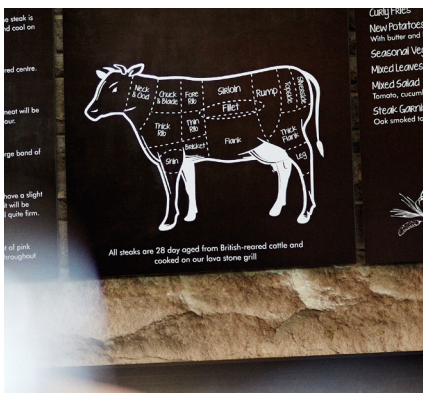 e steak is
nd cool on
red centre.
neat will be
our.
arge band of
have a slight
it will be
l quite firm.
t of pink
throughout
Neck
& Clod
Chuck
& Blade
Fore
Rib
Sirloin
Fillet
Rump
Topside
Silverside
Thick
Rib
Thin
Rib
Brisket
Flank
Thick
Flank
Shin
Leg
All steaks are 28 day aged from British-reared cattle and
cooked on our lava stone grill
Curly Fries
New Potatoes
With butter and
Seasonal Ve
Mixed Leaves
Mixed Salad
Tomato, cucum
Steak Garni
Oak smoked to